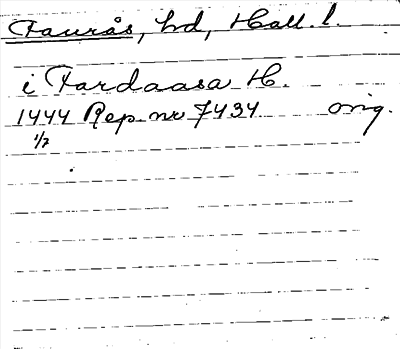 Faurås, hd, Hall. l.
i Fardaasa H.
1444 Rep nr 7434 orig.
1/7